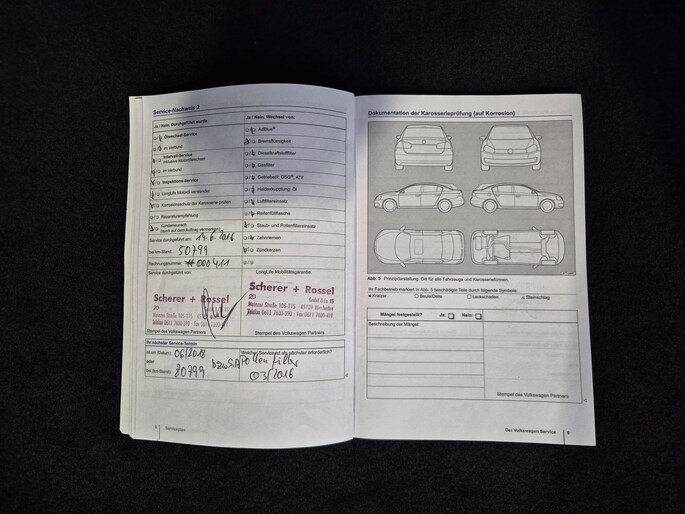 Service-Nachweis 2
Ja / Nein. Durchgeführt wurde:
Ja / Nein. Wechsel von:
Ölwechsel-Service
im Verbund
Intervall-Service
inklusive Mobilitätscheck
im Verbund
Inspektions-Service
LongLife Motoröl verwendet
Karosserieschutz der Karosserie prüfen
Reparaturempfehlung
Kundenwunsch
(auch auf dem Auftrag vermerken)
AdBlue®
Bremsflüssigkeit
Dieselkraftstofffilter
Gasfilter
Getriebeöl: DSG®, ATF
Haldexkupplung: Öl
Luftfiltereinsatz
Reifenfüllflasche
Staub- und Pollenfiltereinsatz
Zahnriemen
Zündkerzen
Service durchgeführt am: 14.6.2016
bei km-Stand: 50799
Rechnungsnummer: #000411
Service durchgeführt von:
LongLife Mobilitätsgarantie:
Scherer + Rossel
Scherer + Rossel
20
Mainzer Straße
Telefon 0611
Stempel des Volkswagen Partners
Stempel des Volkswagen Partners
Ihr nächster Service-Termin
ist am (Datum): 06/2018
oder
bei (km-Stand): 80799
Welcher Service ist als nächster erforderlich?
03/2016
Dokumentation der Karosserieprüfung (auf Korrosion)
Abb. 5 Prinzipdarstellung: Gilt für alle Fahrzeuge und Karosserieformen.
Ihr Fachbetrieb markiert in Abb. 5 beschädigte Teile durch folgende Symbole:
Kratzer
Beule/Delle
Lackschaden
Steinschlag
Mängel festgestellt?
Ja:
Nein:
Beschreibung der Mängel
Stempel des Volkswagen Partners
Der Volkswagen Service
9